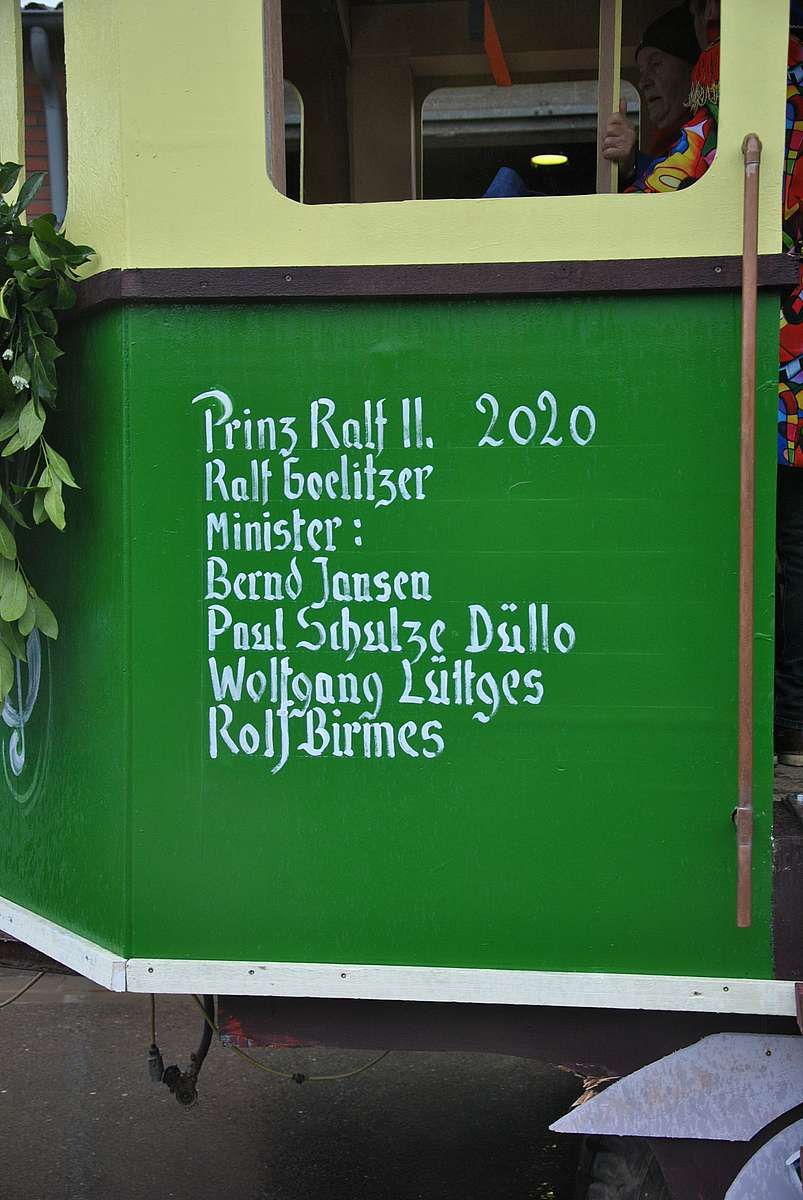 Prinz Ralf II. 2020
Ralf Goelitzer
Minister:
Bernd Jansen
Paul Schulze Düllo
Wolfgang Lüttges
Rolf Birmes